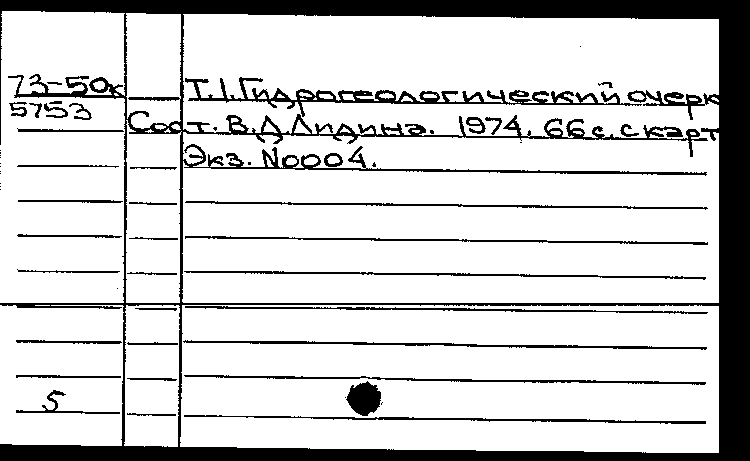 73-50к Т.1. Гидрогеологический очерк
5753 Сост. В.Д. Лидина. 1974. 66 с. с карт
Экз. N0004.
5